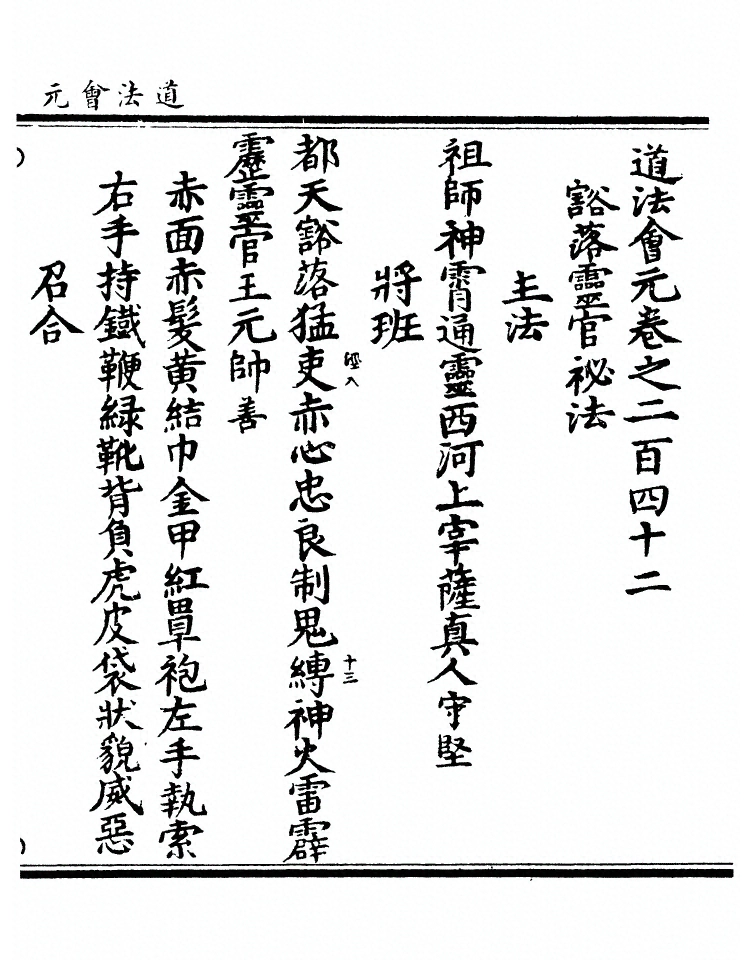 道法會元
道法會元卷之二百四十二
豁落靈官祕法
主法
祖師神霄通靈西河上宰薩真人守堅
將班
都天豁落猛吏赤心忠良制鬼縛神火雷霹
十三
靂靈官王元帥善
赤面赤髮黃結巾金甲紅罩袍左手執索
右手持鐵鞭綠靴背負虎皮袋狀貌威惡
召合